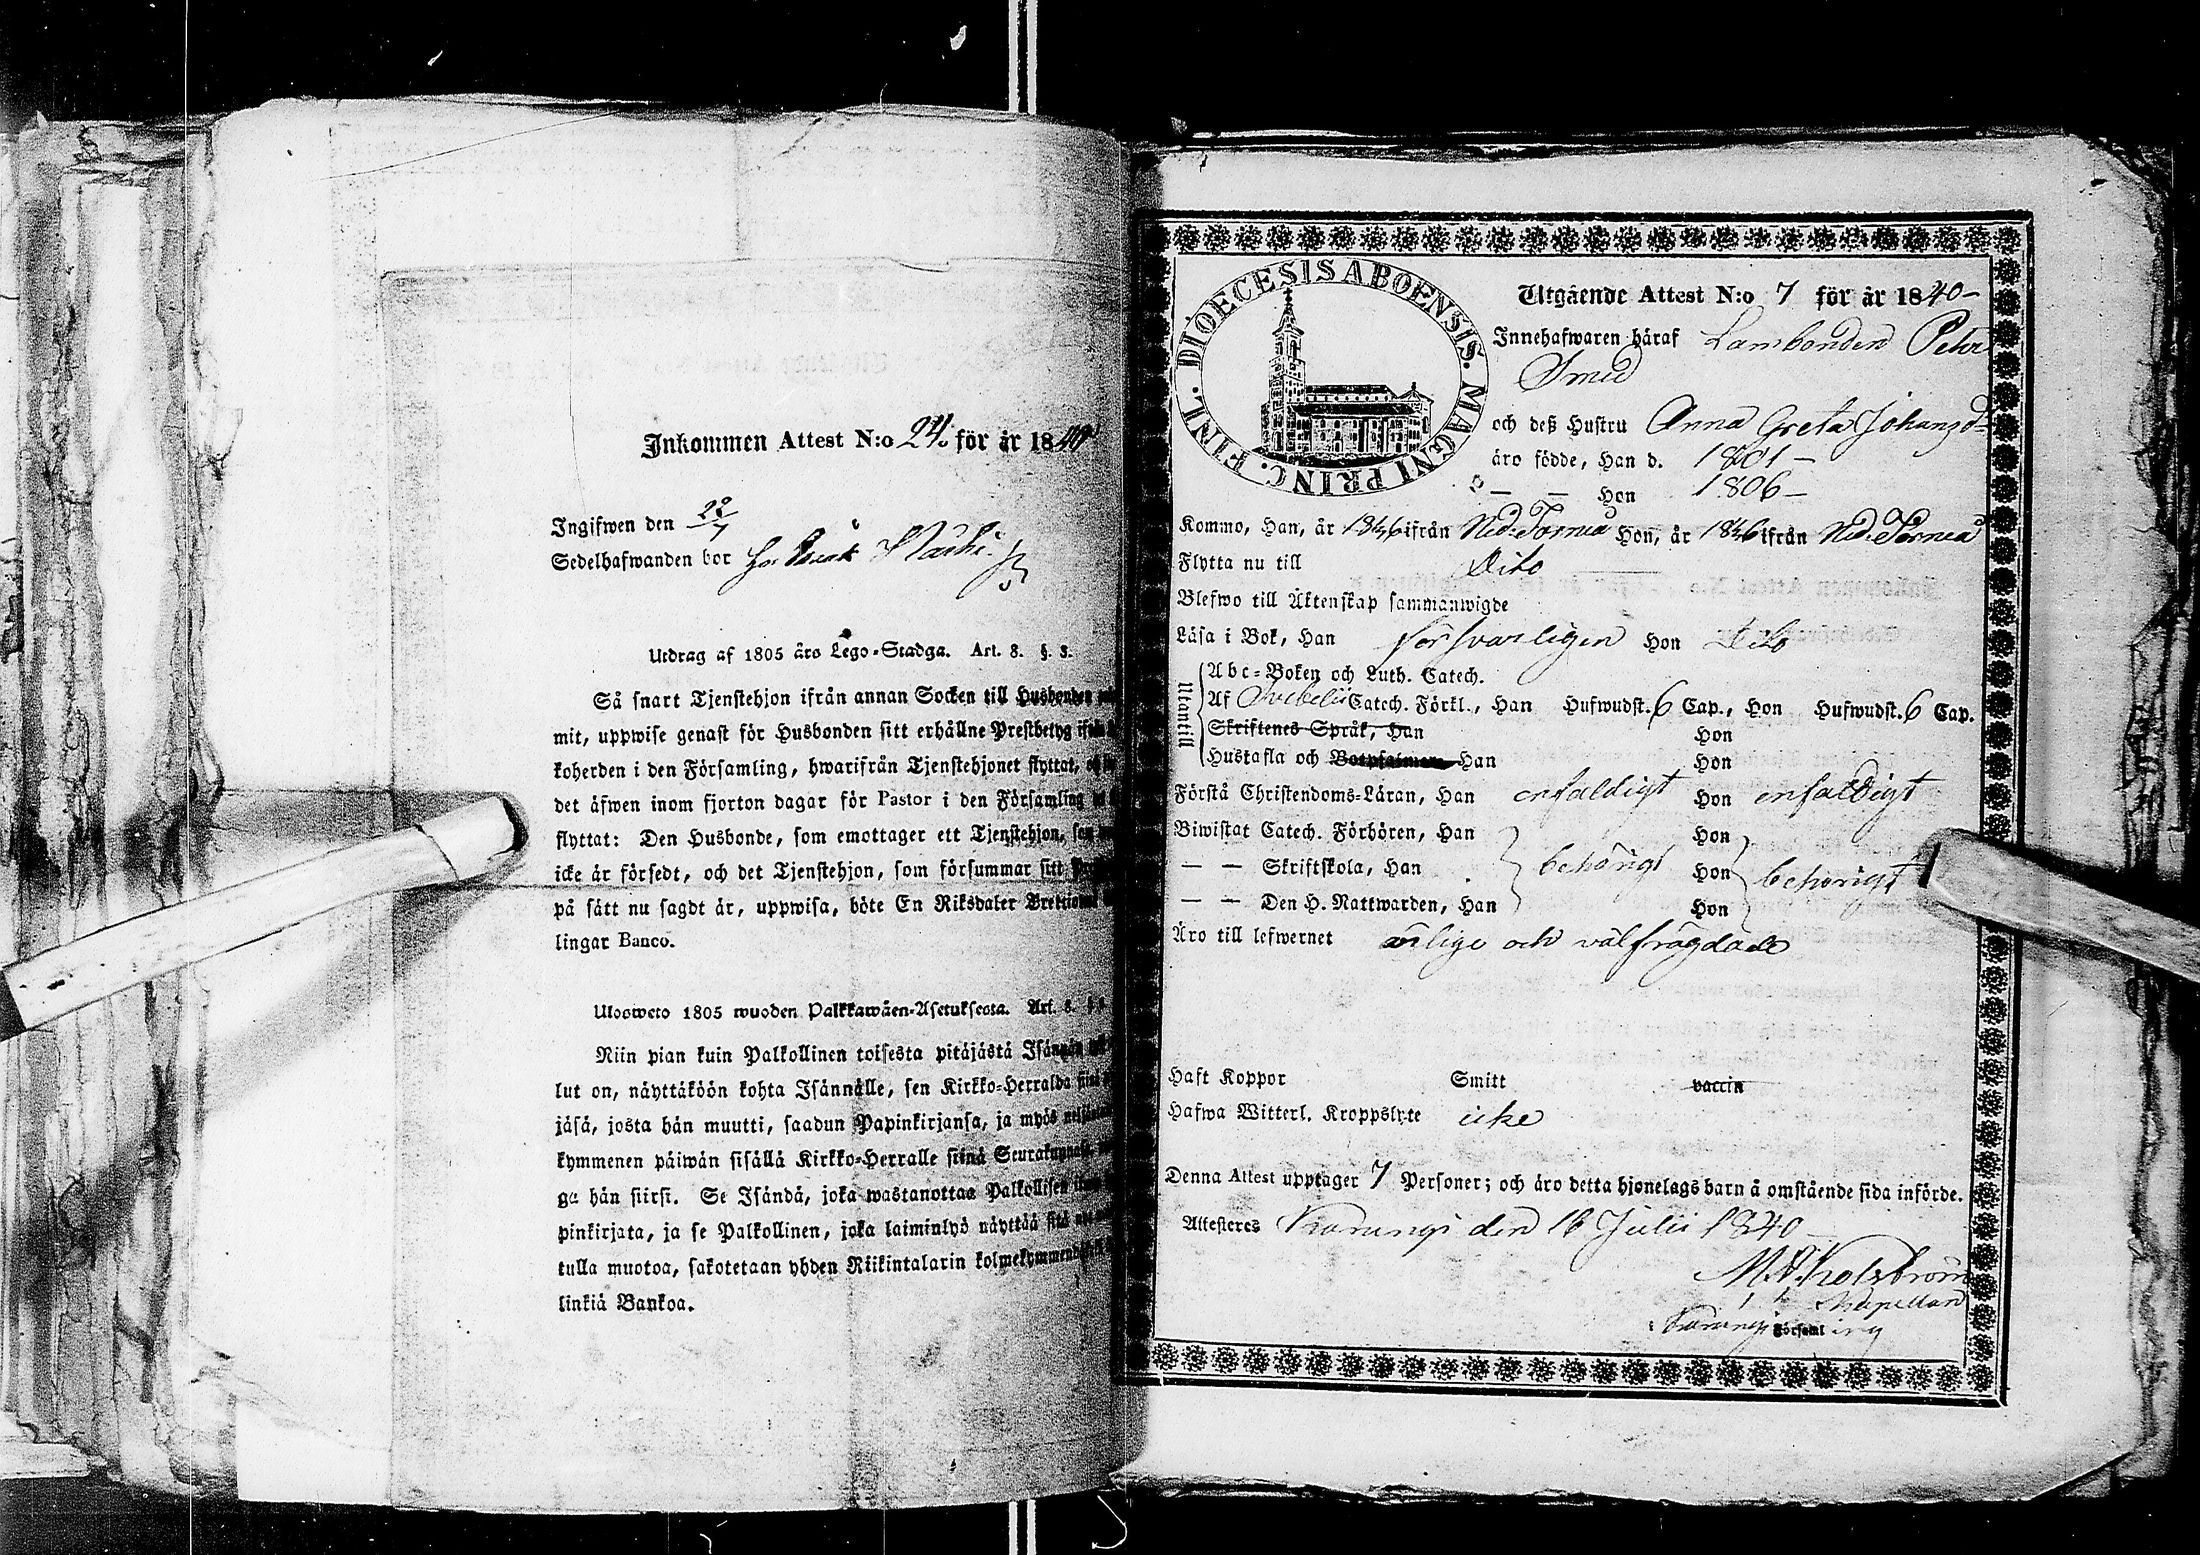 Inkommen Attest N:o 24. för år 1840
Ingifwen den 22/7
Sedelhafwanden bor hos
Utdrag af 1805 års Lego-Stadga. Art. 8. §. 3.
Så snart Tjenstehjon ifrån annan Socken till Husbonden
mit, uppwise genast för Husbonden sitt erhållne Prestbetyg ifrån
koherden i den Församling, hwarifrån Tjenstehjonet flyttat,
det äfwen inom fjorton dagar för Pastor i den Församling
flyttat: Den Husbonde, som emottager ett Tjenstehjon,
icke är försedt, och det Tjenstehjon, som försummar sitt
på sätt nu sagdt är, uppwisa, böte En Riksdaler
lingar Banco.
Ulosweto 1805 wuoden Palkkawäen-Asetuksesta. Art. 8. §
Niin pian kuin Palkollinen toisesta pitäjästä Isännän
lut on, näyttäköön kohta Isännälle, sen Kirkko-Herralda
jäsä, josta hän muutti, saadun Papinkirjansa, ja myös
kymmenen päiwän sisällä Kirkko-Herralle siinä
ga hän siirsi. Se Isändä, joka wastanottaa Palkollisen
pinkirjata, ja se Palkollinen, joka laiminlyö näyttää sitä
tulla muotoa, sakotetaan yhden Riikintalarin
linkiä Bankoa.
DIOECESIS ABOENSIS. MAGNI PRINC. FINL.
Utgående Attest N:o 7 för år 1840-
Innehafwaren häraf Lambonden Petr
Smed
och deß Hustru Anna Greta Johansd:
äro födde, Han d. 1801-
— — Hon 1806-
Kommo, Han, år 1836 ifrån Ned. Torneå Hon, år 1836 ifrån Ned. Torneå
Flytta nu till Dito
Blefwo till Äktenskap sammanwigde
Läsa i Bok, Han försvarligen Hon Dito
Utantill
Abc-Boken och Luth. Catech.
Af Svebelii Catech. Förkl., Han Hufwudst. 6 Cap., Hon Hufwudst. 6 Cap.
Skriftenes Språk, Han Hon
Hustafla och Botpsalmen, Han Hon
Förstå Christendoms-Läran, Han enfaldigt Hon enfaldigt
Biwistat Catech. Förhören, Han Hon
— — Skriftskola, Han behörigt Hon behörigt
— — Den H. Nattwarden, Han Hon
Äro till lefwernet ärlige och välfrägdade
Haft Koppor Smitt vaccin
Hafwa Witterl. Kroppslyte icke
Denna Attest upptager 7 Personer; och äro detta hjonelags barn å omstående sida införde.
Attesteres Karungi den 16 Julii 1840-
Kapellan
Karungi Församling